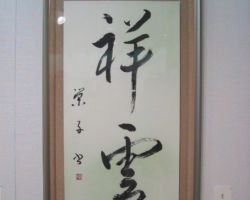 祥雲
栄子書